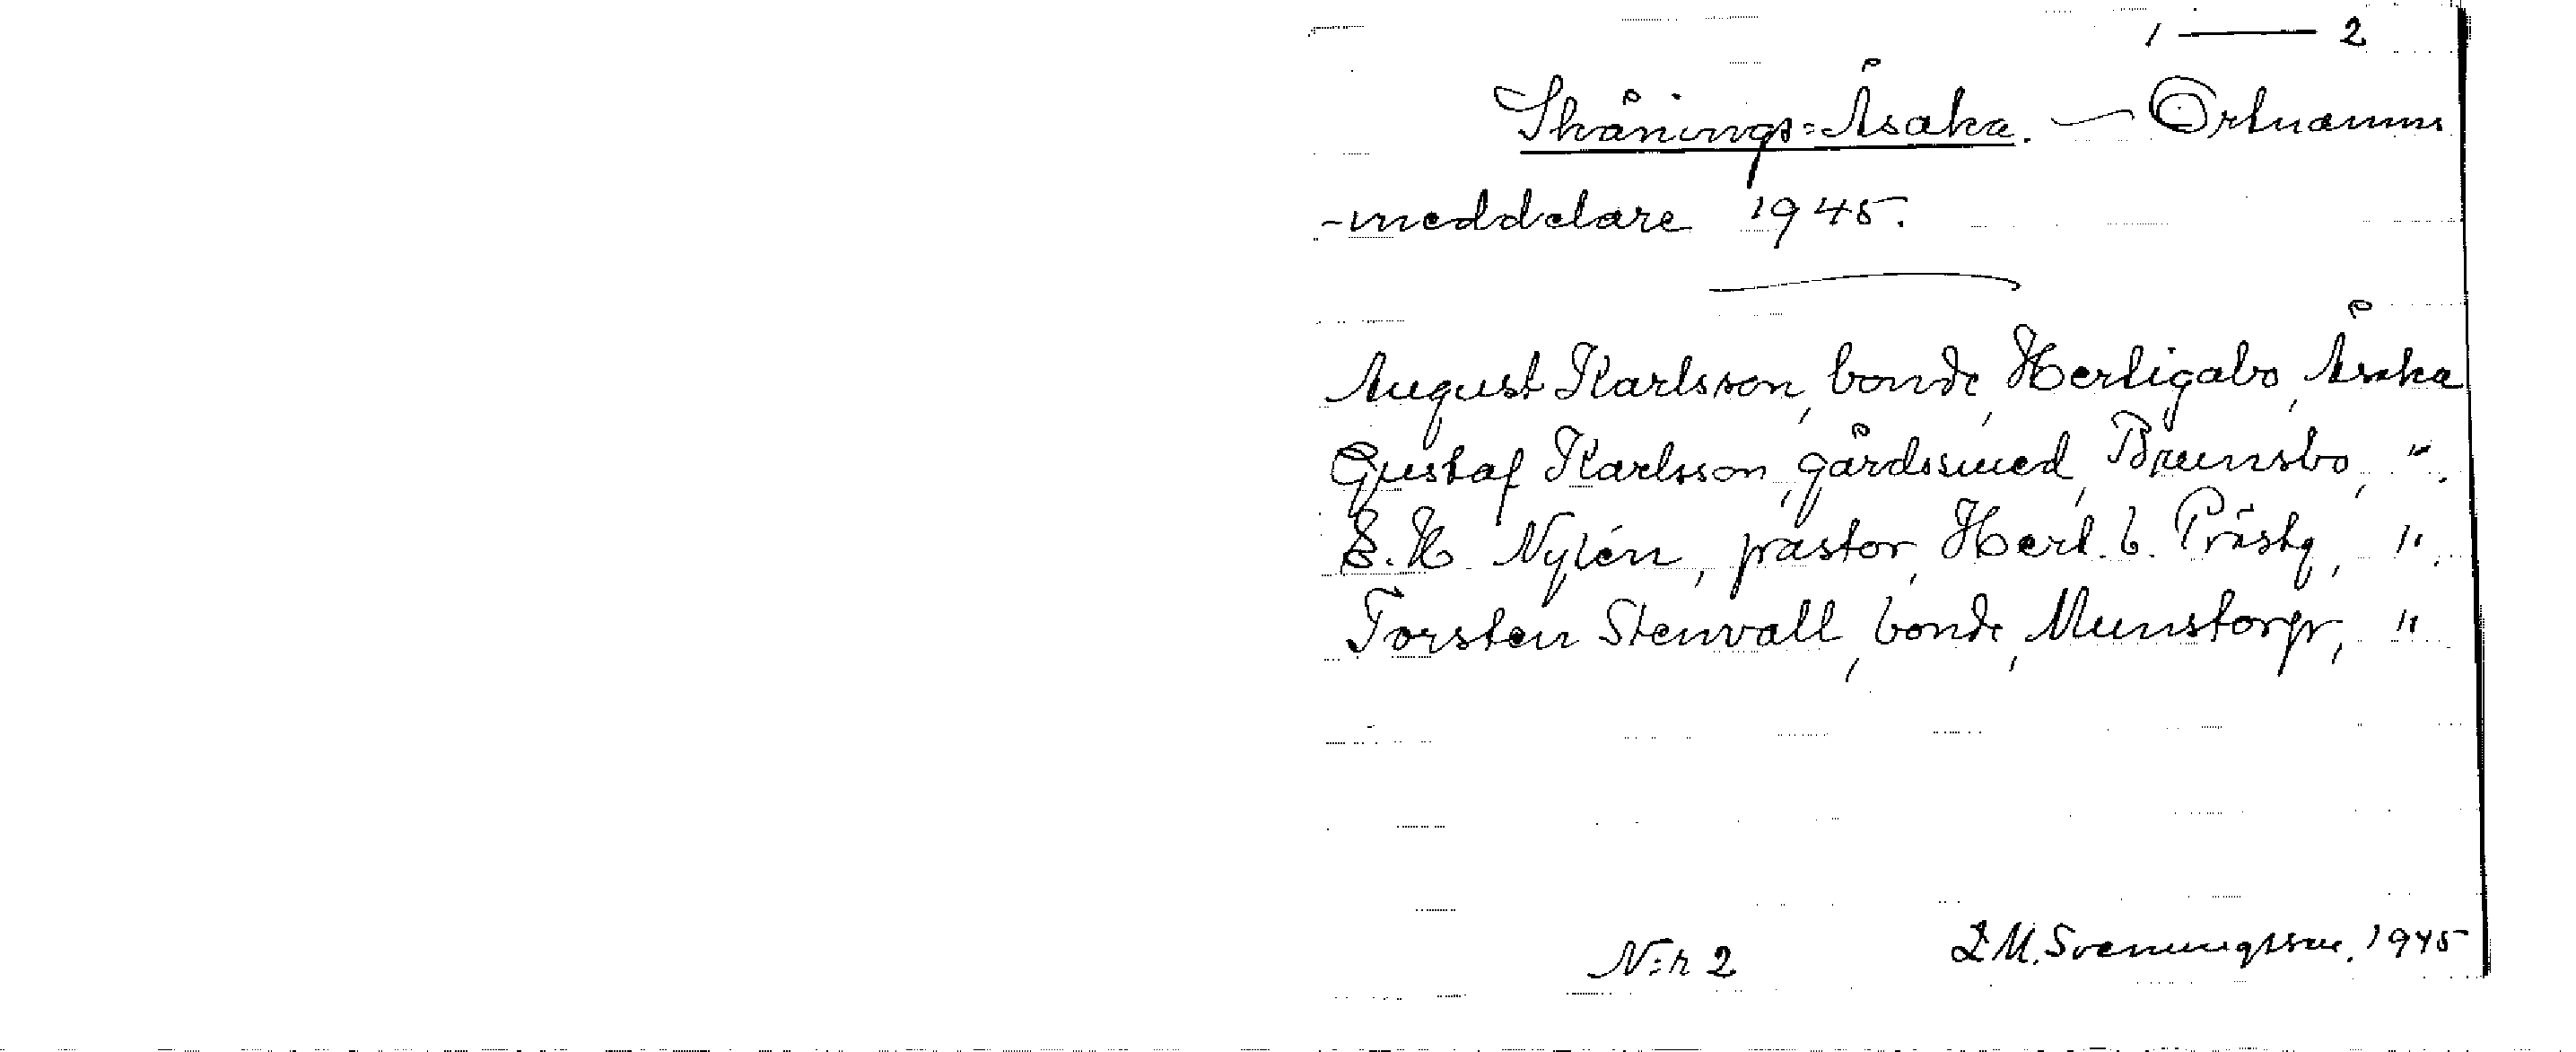 1 — 2
Skånings=Åsaka. — Ortnamns
-meddelare 1945.
August Karlsson, bonde, Hertigabo, Åsaka
Gustaf Karlsson, gårdssmed, Brunsbo, ".
E. H. Nylén, pastor, Hert. b. Prästg, ".
Torsten Stenvall, bonde, Munstorp, "
N:r 2 L M. Svenungsson. 1945